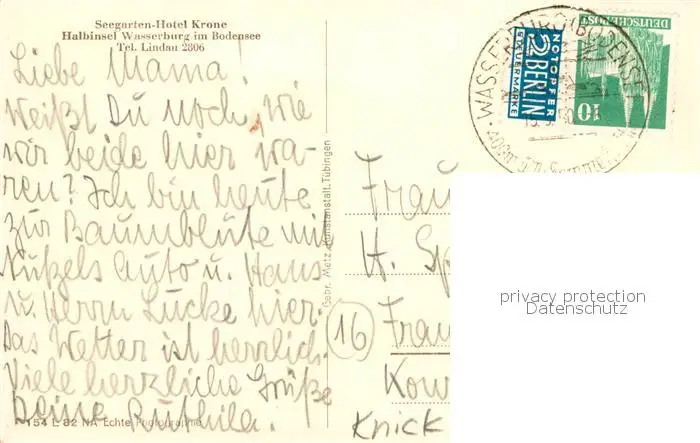 Seegarten-Hotel Krone
Halbinsel Wasserburg im Bodensee
Tel. Lindau 2806
Liebe Mama!
Weißt Du noch, wie
wir beide hier wa-
ren? Ich bin heute
zur Baumblüte mit
Nußels Auto u. Hans
u. Herrn Lücke hier.
Das Wetter ist herrlich.
Viele herzliche Grüße
Deine Ruthila.
154 L 82 NA Echte Photographie
Gebr. Metz, Kunstanstalt, Tübingen
NOTOPFER
2 BERLIN
STEUERMARKE
DEUTSCHE POST
10
WASSERBURG (BODENSEE)
400m ü.m.
Frau
H. Sp
16
Fran
Knick
privacy protection
Datenschutz